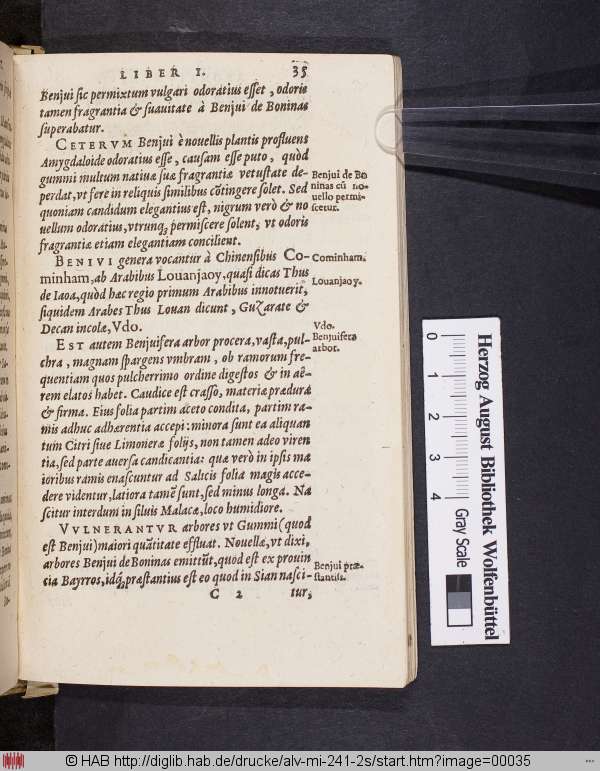 LIBER I. 35
Benjui sic permixtum vulgari odoratius esset, odoris
tamen fragrantia & suauitate à Benjui de Boninas
superabatur.
CETERVM Benjui è nouellis plantis profluens
Amygdaloide odoratius esse, causam esse puto, quòd
gummi multum natiuæ suæ fragrantiæ vetustate de-
perdat, vt fere in reliquis similibus cõtingere solet. Sed
quoniam candidum elegantius est, nigrum verò & no
uellum odoratius, vtrunq; permiscere solent, vt odoris
fragrantiæ etiam elegantiam concilient.
Benjui de Bo
ninas cũ no-
uello permi-
scetur.
BENIVI genera vocantur à Chinensibus Co-
minham, ab Arabibus Louanjaoy, quasi dicas Thus
de Iaoa, quòd hac regio primum Arabibus innotuerit,
siquidem Arabes Thus Louan dicunt, Guzarate &
Decan incolæ, Vdo.
Cominham.
Louanjaoy.
Vdo.
EST autem Benjuifera arbor procera, vasta, pul-
chra, magnam spargens vmbram, ob ramorum fre-
quentiam quos pulcherrimo ordine digestos & in aë-
rem elatos habet. Caudice est crasso, materiæ præduræ
& firma. Eius folia partim aceto condita, partim ra-
mis adhuc adhærentia accepi: minora sunt ea aliquan
tum Citri siue Limoneræ folijs, non tamen adeo viren
tia, sed parte auersa candicantia: quæ verò in ipsis ma
ioribus ramis enascuntur ad Salicis folia magis acce-
dere videntur, latiora tamẽ sunt, sed minus longa. Na
scitur interdum in siluis Malacæ, loco humidiore.
Benjuifera
arbor.
VVLNERANTVR arbores vt Gummi (quod
est Benjui) maiori quãtitate effluat. Nouellæ, vt dixi,
arbores Benjui de Boninas emittũt, quod est ex prouin
cia Bayrros, idq; præstantius est eo quod in Sian nasci-
Benjui præ-
stantiss.
C 2 tur,
0 1 2 3 4
Herzog August Bibliothek Wolfenbüttel
Gray Scale
© HAB http://diglib.hab.de/drucke/alv-mi-241-2s/start.htm?image=00035